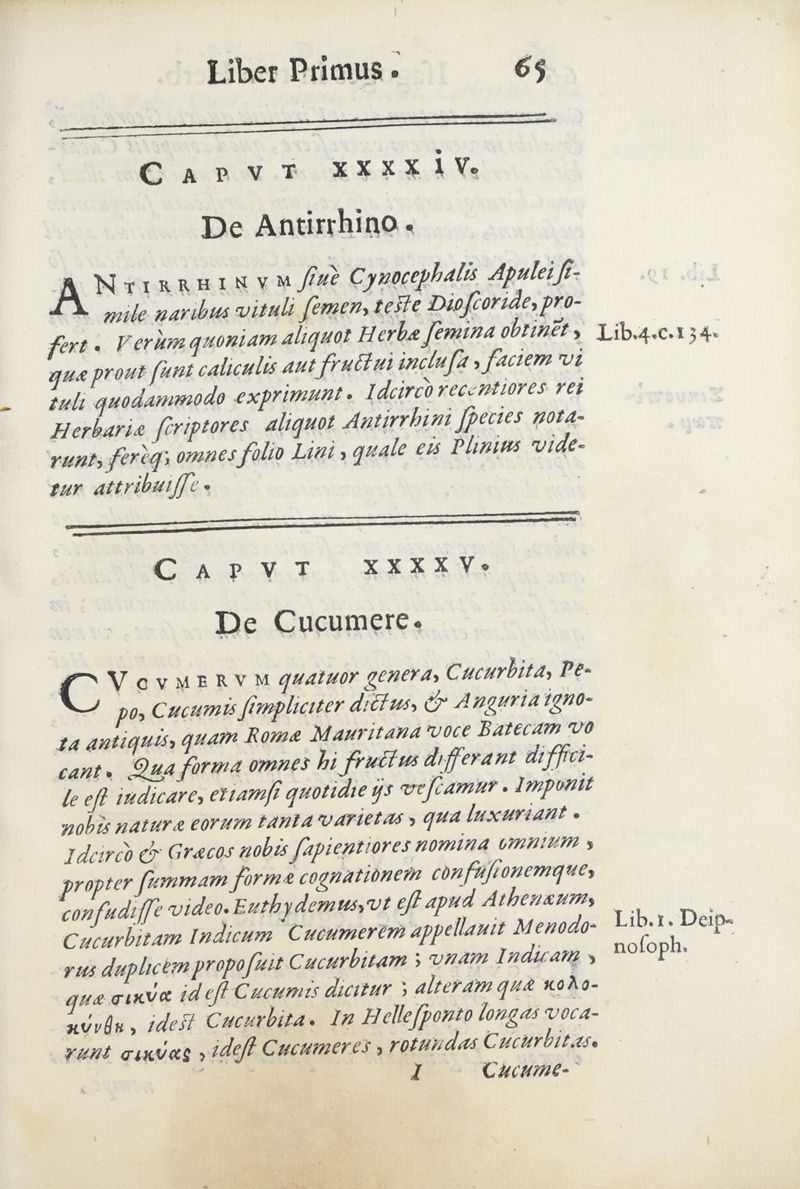 Liber Primus. 65
CAPVT XXXXIV.
De Antirrhino.
ANTIRRHINVM ſiue Cynocephalis Apulei ſi-
mile naribus vituli ſemen, teſte Dioſcoride, pro-
fert. Verùm quoniam aliquot Herbæ ſemina obtinēt,
Lib.4.c.134.
quæ prout ſunt caliculis aut fructui incluſa, faciem vi
tuli quodammodo exprimunt. Idcircò recentiores rei
Herbariæ ſcriptores aliquot Antirrhini ſpecies nota-
runt, ferèq; omnes folio Lini, quale eis Plinius vide-
tur attribuiſſe.
CAPVT XXXXV.
De Cucumere.
CVCVMERVM quatuor genera, Cucurbita, Pe-
po, Cucumis ſimpliciter dictus, & Anguria igno-
ta antiquis, quam Romæ Mauritana voce Batecam vo
cant. Qua forma omnes hi fructus differant diffici-
le eſt iudicare, etiamſi quotidie ijs veſcamur. Imponit
nobis naturæ eorum tanta varietas, qua luxuriant.
Idcircò & Græcos nobis ſapientiores nomina omnium,
propter ſummam formæ cognationem confuſionemque,
confudiſſe video. Euthydemus, vt eſt apud Athenæum,
Lib.1. Deip-
noſoph.
Cucurbitam Indicum Cucumerem appellauit Menodo-
rus duplicem propoſuit Cucurbitam; vnam Indicam,
quæ σικύα id eſt Cucumis dicitur; alteram quæ κολο-
κύνθη, ideſt Cucurbita. In Helleſponto longas voca-
runt σικύας, ideſt Cucumeres, rotundas Cucurbitas.
I Cucume-